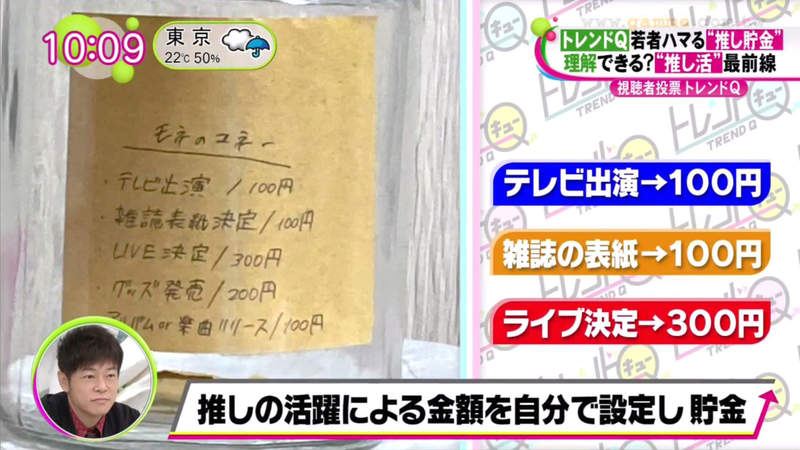 10:09
東京
22℃ 50%
トレンドQ 若者ハマる"推し貯金"
理解できる?"推し活"最前線
視聴者投票 トレンドQ
モネのマネー
・テレビ出演 / 100円
・雑誌表紙決定 / 100円
・LIVE 決定 / 300円
・グッズ発売 / 200円
アルバム or 楽曲リリース / 100円
テレビ出演→100円
雑誌の表紙→100円
ライブ決定→300円
推しの活躍による金額を自分で設定し 貯金
トレンドQ
キュー
TREND Q